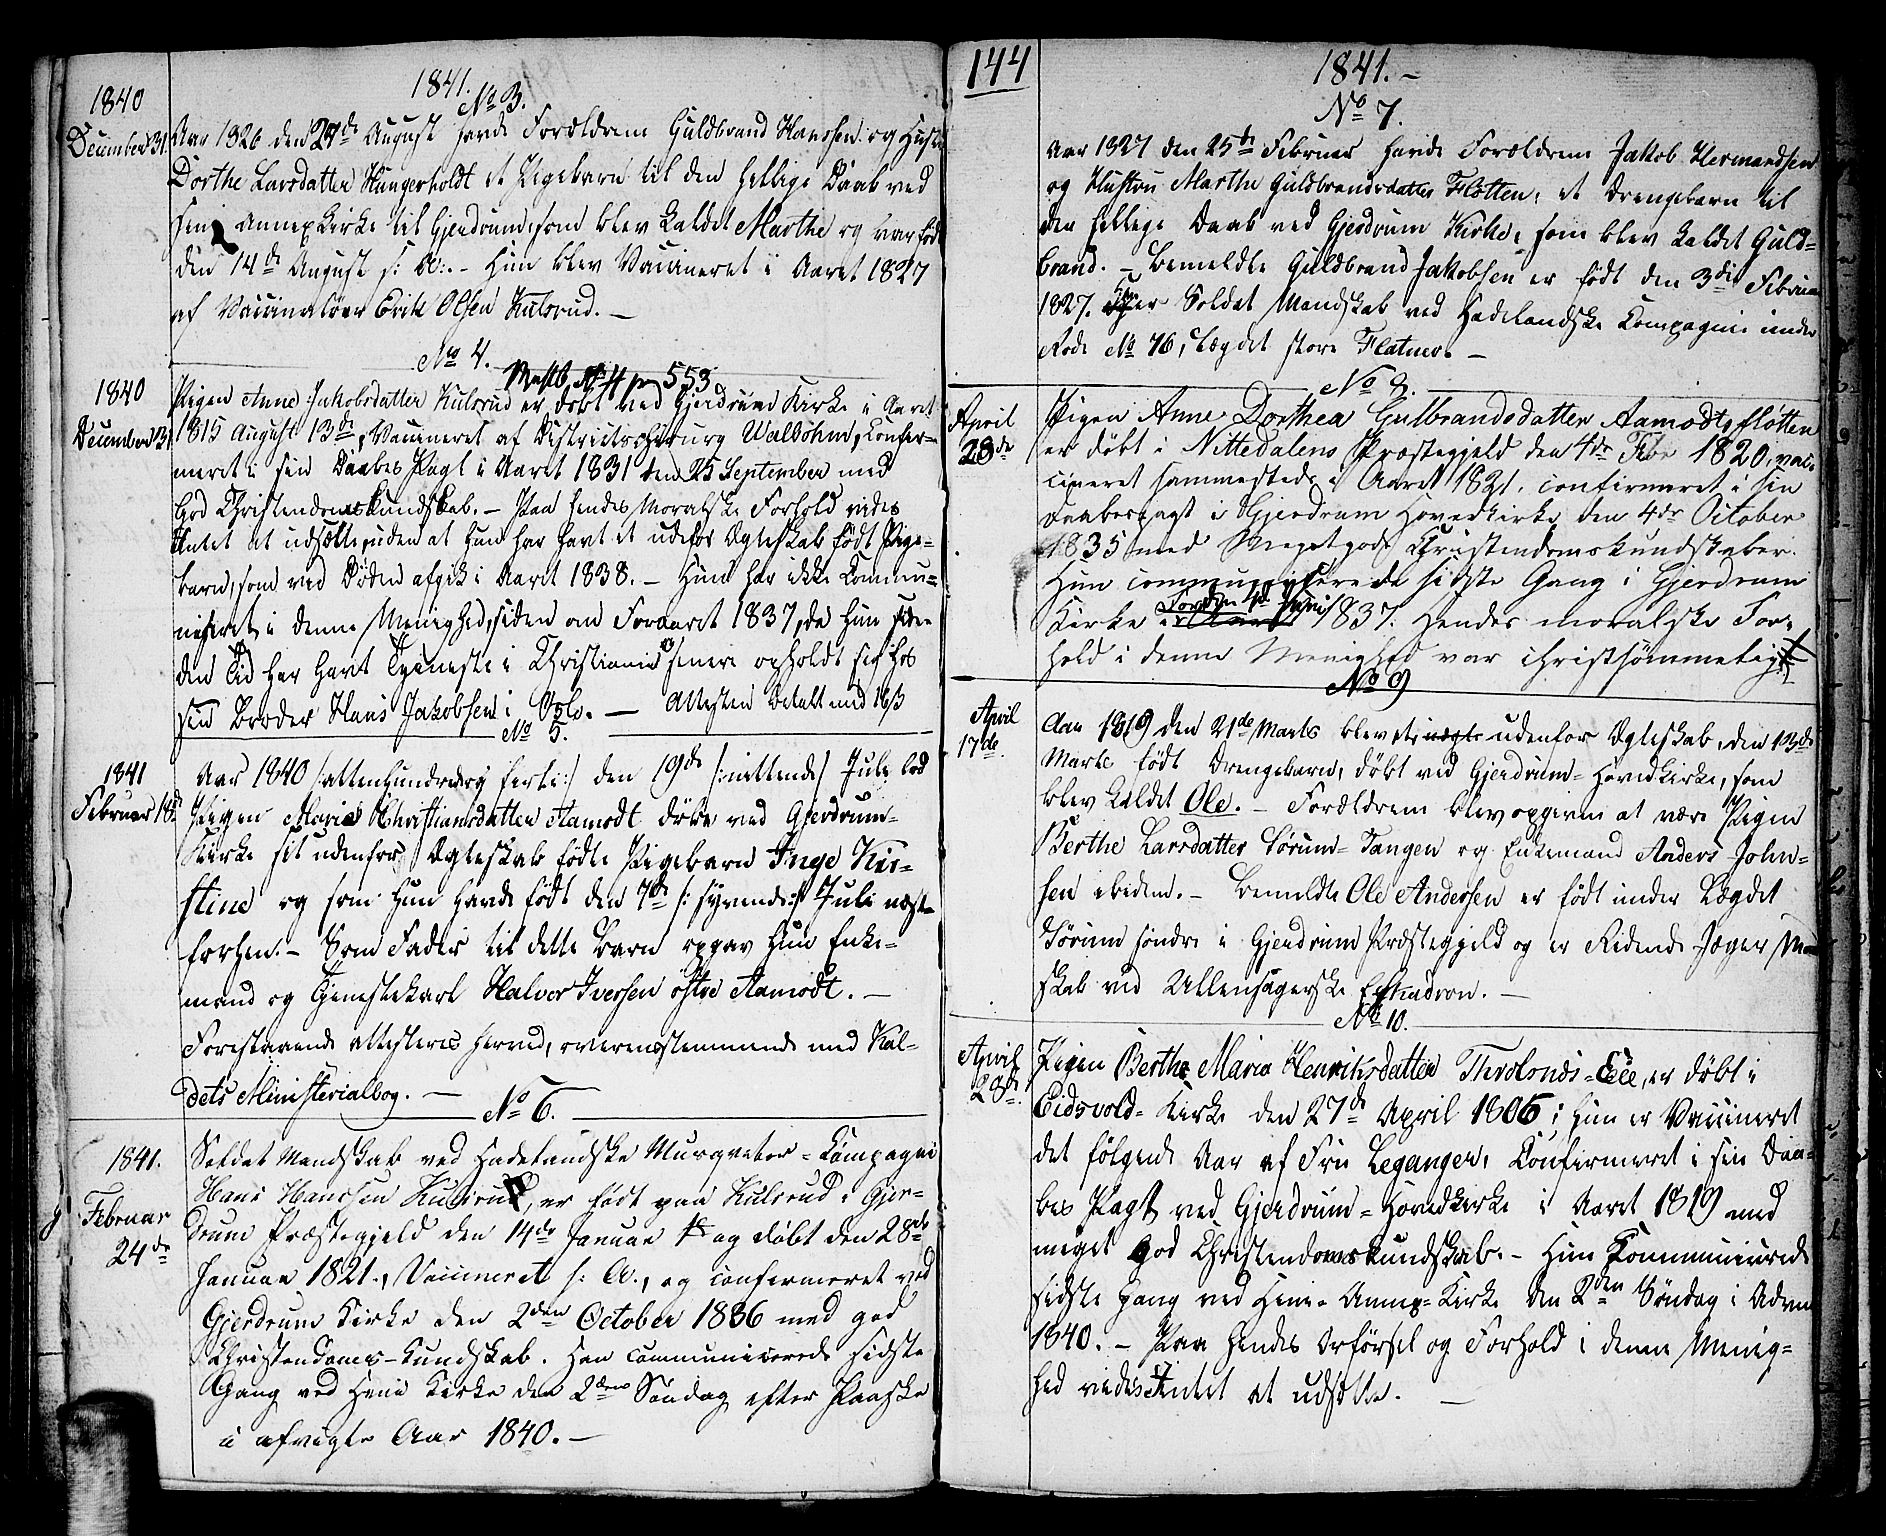 1841.
No 3.
1840
December 31.
Aar 1826 den 27de August havde Forældrene Guldbrand Hanssen og Hustru
Dorthe Larsdatter Hungerholdt et Pigebarn til den hellige Daab ved
sin Annexkirke til Gjerdrum, som blev kaldet Marthe og var født
den 14de August s: A:. – Hun blev Vaccineret i Aaret 1827
af Vaccinatöer Erik Olsen Kulsrud. –
No 4.
1840
December 31
Pigen Anne Jakobsdatter Kulsrud er døbt ved Gjerdrum Kirke i Aaret
1815 August 13de, Vaccineret af Districtschirurg Walböhm, Confir-
meret i sin Daabes Pagt i Aaret 1831 den 25 September med
God Christendomskundskab. – Paa hendes Moralske Forhold vides
Intet at udsætte, uden at hun har havt et udefor Ægteskab født Pige-
barn, som ved Døden afgik i Aaret 1838. – Hun har ikke Commu-
niseret i denne Menighed, siden om Foraaret 1837, da hun siden
den Tid har havt Tjeneste i Christiania senere opholdt sig hos
sin Broder Hans Jakobsen i Oslo. – Attesten betalt med 16 β
No 5.
1841
Februar 18de
Aar 1840 /:attenhundrede og forti:/ den 19de /:nittende/ Juli lod
Pigen Marie Christiansdatter Aamodt døbe ved Gjerdrum-
Kirke sit udenfor Ægteskab fødte Pigebarn Inge Kir-
stine og som hun havde født den 7de /:syvende:/ Juli næst
forhen. – Som Fader til dette Barn opgav hun Enke-
mand og Tjenestekarl Halvor Iversen östre Aamodt. –
Forestaaende attesteres herved, overensstemmende med Kal-
dets Ministerialbog. –
No 6.
1841.
Februar
24de
Soldat Mandskab ved Hadelandske Musqueter-Compagni
Hans Hanssen Kulsrud, er født paa Kulsrud i Gjer-
drum Præstegjeld den 14de Januar og døbt den 28de
Januar 1821., Vaccineret s: A., og confirmeret ved
Gjerdrum Kirke den 2den October 1836 med god
Christendoms-Kundskab. Han communicerede sidste
Gang ved Heni Kirke den 2den Søndag efter Paaske
i afvigte Aar 1840. –
144
1841. –
No 7.
Aar 1827 den 25de Februar havde Forældrene Jakob Hermandsen
og Hustru Marthe Guldbrandsdatter Flotten, et Drengebarn til
den hellige Daab ved Gjerdrum Kirke, som blev kaldet Guld-
brand. – Bemeldte Guldbrand Jakobsen er født den 3die Februar
1827. Han er Soldat Mandskab ved Hadelandske Compagnie under
Rode No 76, Lægdet store Flatner. –
No 8.
April
28de
Pigen Anne Dorthea Gulbrandsdatter Aamodtsfløtten
er döbt i Nittedalens Præstegjeld den 4de Febr 1820, vac-
cineret sammesteds i Aaret 1821, confirmeret i sin
Daabespagt i Gjerdrum Hovedkirke den 4de October
1835 med Meget gode Christendomskundskaber.
Hun communiserede sidste Gang i Gjerdrum
Kirke 1837. Hendes moralske For-
hold i denne Menighed var christsømmelig
No 9
April
17de
Aar 1819 den 21de Marts blev et udenfor Ægteskab, den 13de
Marts født Drengebarn, døbt ved Gjerdrum-Hovedkirke, som
blev kaldet Ole. – Forældrene blev opgiven at være Pigen
Berthe Larsdatter Sörum-Tangen og Enkemand Anders John-
sen ibidem. – Bemeldte Ole Andersen er født under Lægdet
Sörum söndre i Gjerdrum Præstegjeld og er Ridende Jæger Man
skab ved Ullensagerske Eskadron. –
No 10.
April
28de
Pigen Berthe Maria Henriksdatter Throlsnds-Eie, er døbt i
Eidsvold-Kirke den 27de April 1806; hun er Vaccineret
det følgende Aar af Fru Leganger, Confirmeret i sin Daa-
bes Pagt ved Gjerdrum-Hovedkirke i Aaret 1819 med
meget God Christendomskundskab. – Hun Kommunicerede
sidste Gang ved Heni-Annex-Kirke den 2den Søndag i Adven
1840. – Paa hendes Opførsel og Forhold i denne Menig-
hed vides Intet at udsætte. –